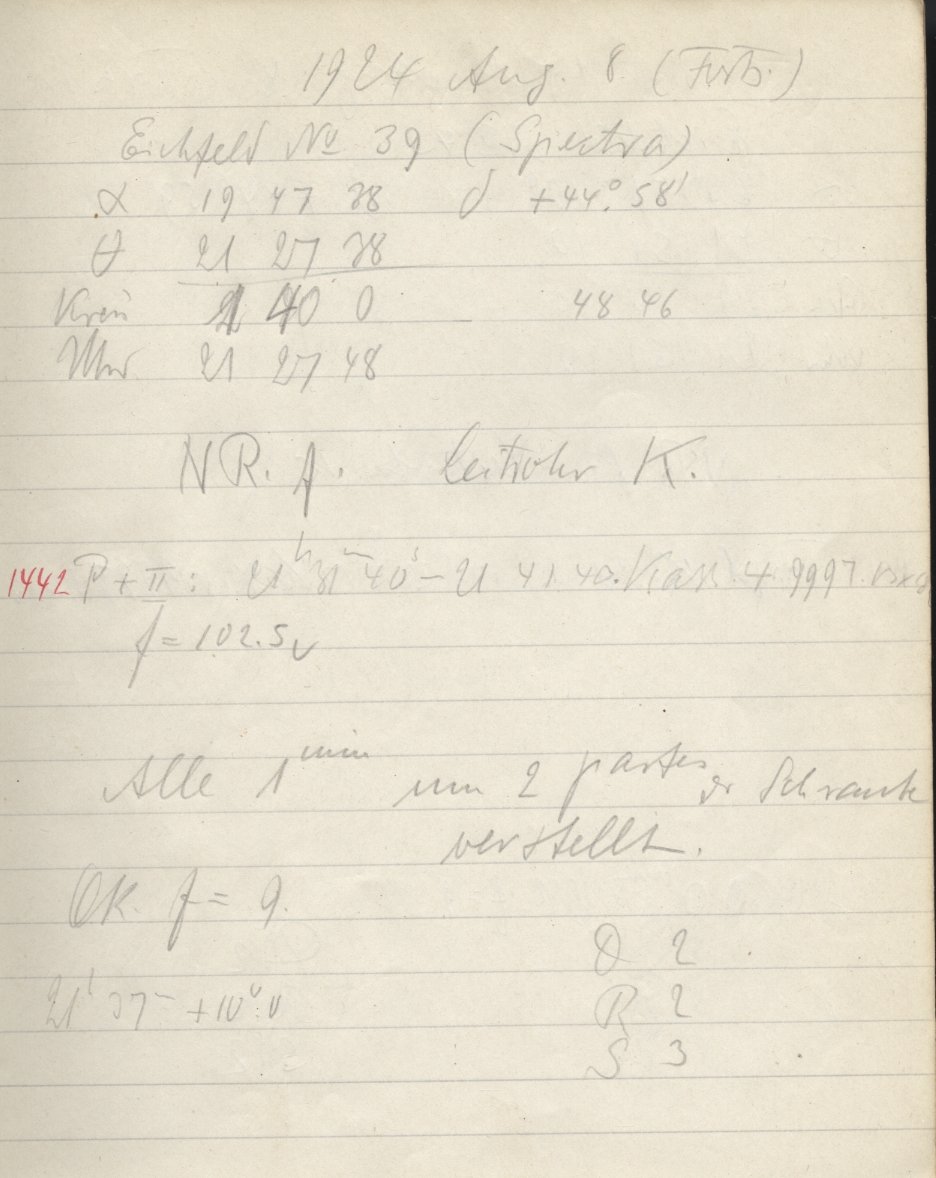 1924 Aug. 8 (Forts.)
Eichfeld No 39 (Spectra)
α 19 47 38 δ +44° 58'
θ 21 27 38
Kreis 1 40 0 48 46
Uhr 21 27 48
NR. f. Leitrohr K.
1442 P + II: 21h 31m 40s – 21 41 40. Kass. 4. 9997.
f = 102.5
Alle 1 min um 2 partes Schraube
verstellt.
Ok. f = 9.
D 2
21h 37m +10°.0 R 2
S 3